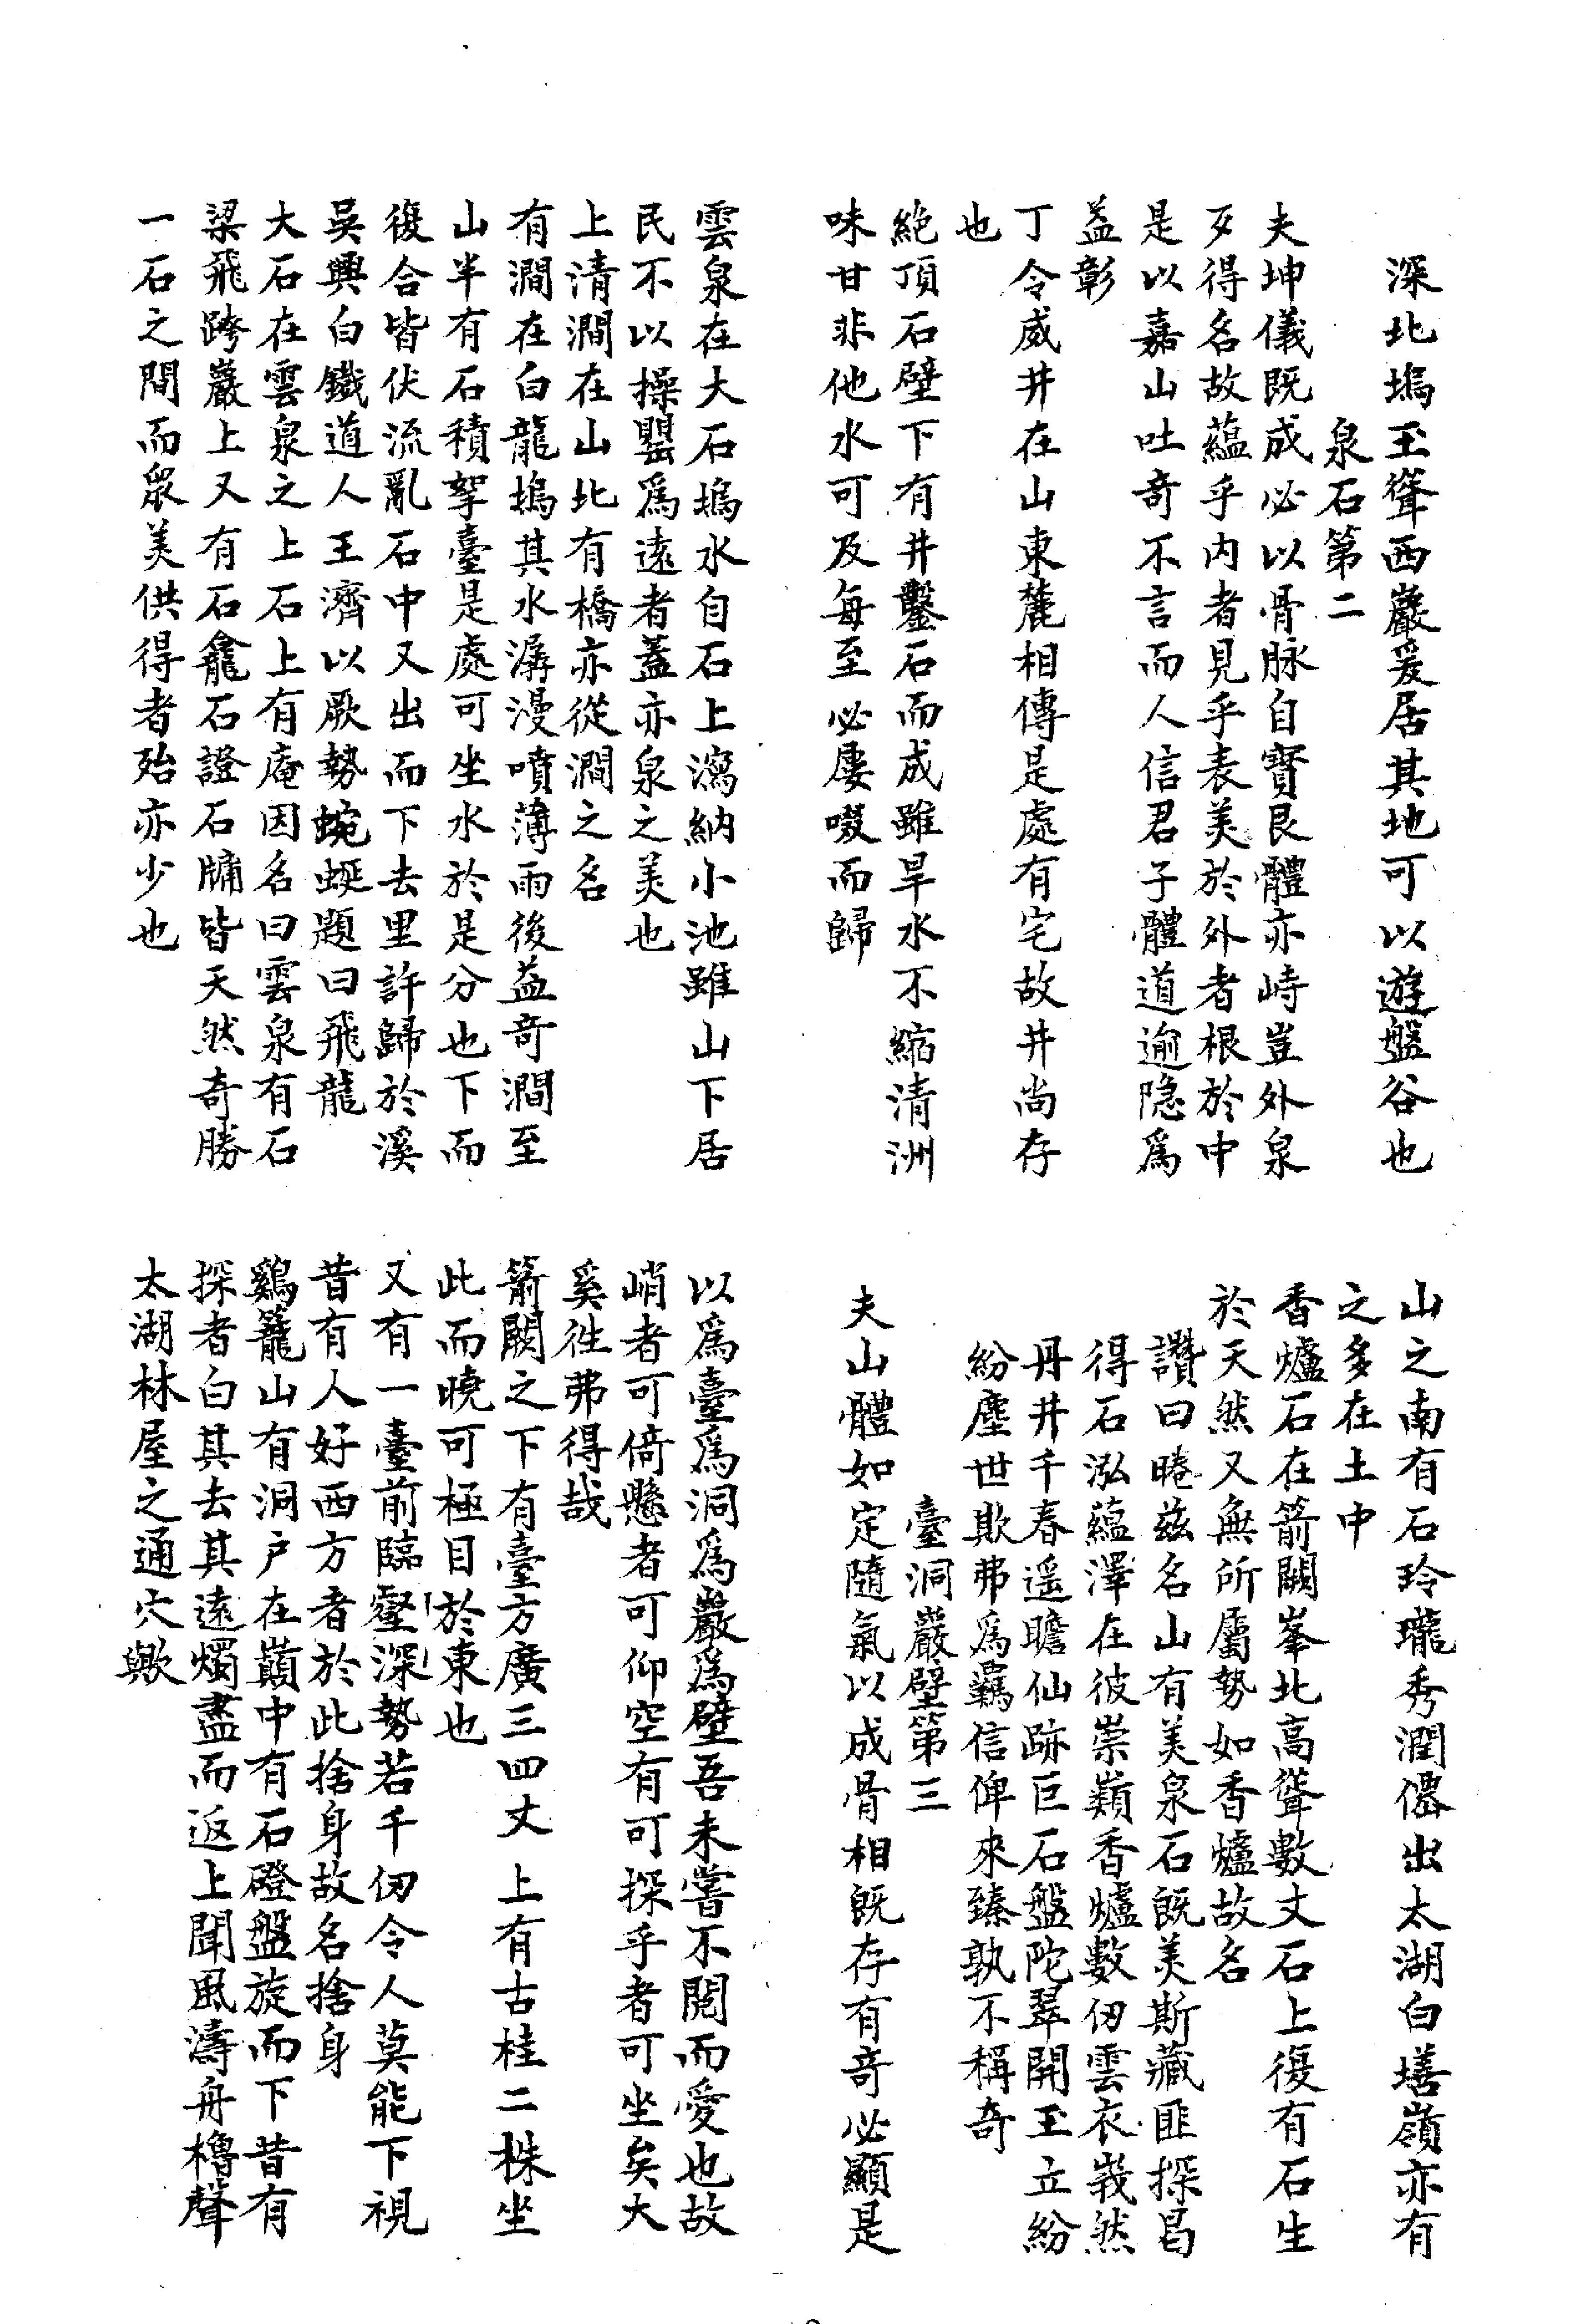 深北塢玉聳西巖爰居其地可以遊盤谷也
泉石第二
夫坤儀既成必以骨脉自寳艮體亦峙豈外泉
歹得名故蘊乎内者見乎表美於外者根於中
是以嘉山吐奇不言而人信君子體道逾隐爲
益彰
丁令威井在山東麓相傳是處有宅故井尚存
也
絶頂石壁下有井鑿石而成雖旱水不縮清洲
味甘非他水可及每至必屢啜而歸
雲泉在大石塢水自石上瀉納小池雖山下居
民不以操罌爲遠者蓋亦泉之美也
上清澗在山北有橋亦從澗之名
有澗在白龍塢其水潺漫噴薄雨後益奇澗至
山半有石積拏臺是處可坐水於是分也下而
復合皆伏流亂石中又出而下去里許歸於溪
吳興白鐵道人王濟以厥勢蜿蜒題曰飛龍
大石在雲泉之上石上有庵因名曰雲泉有石
梁飛跨巖上又有石龕石證石牗皆天然奇勝
一石之間而衆美供得者殆亦少也
山之南有石玲瓏秀潤僊出太湖白墡嶺亦有
之多在土中
香爐石在箭闕峯北高聳數丈石上復有石生
於天然又無所屬勢如香爐故名
讚曰睠兹名山有美泉石既美斯藏匪探曷
得石泓蘊澤在彼崇巔香爐數仞雲衣峩然
丹井千春遥瞻仙跡巨石盤陀翠開玉立紛
紛塵世欺弗爲羈信俾來臻孰不稱奇
臺洞巖壁第三
夫山體如定隨氣以成骨相既存有奇必顯是
以爲臺爲洞爲巖爲壁吾未嘗不閲而愛也故
峭者可倚懸者可仰空有可探乎者可坐矣大
奚徃弗得哉
箭闕之下有臺方廣三四丈上有古桂二株坐
此而曉可極目於東也
又有一臺前臨壑深勢若千仞令人莫能下視
昔有人好西方者於此捨身故名捨身
鷄籠山有洞户在巔中有石磴盤旋而下昔有
探者白其去其遠燭盡而返上聞風濤舟櫓聲
太湖林屋之通穴歟